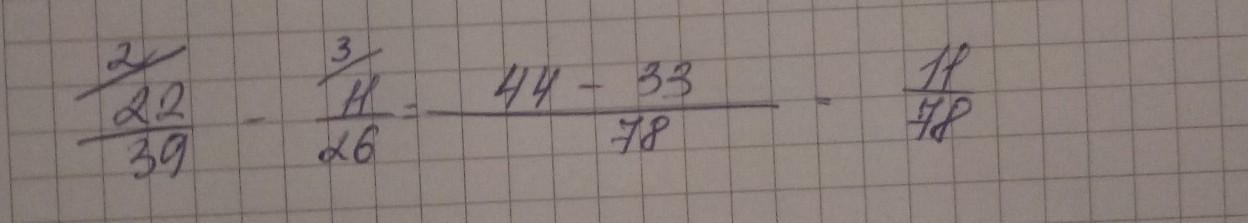 2/ 22/39 - 3/ 11/26 = 44 - 33/78 - 11/78